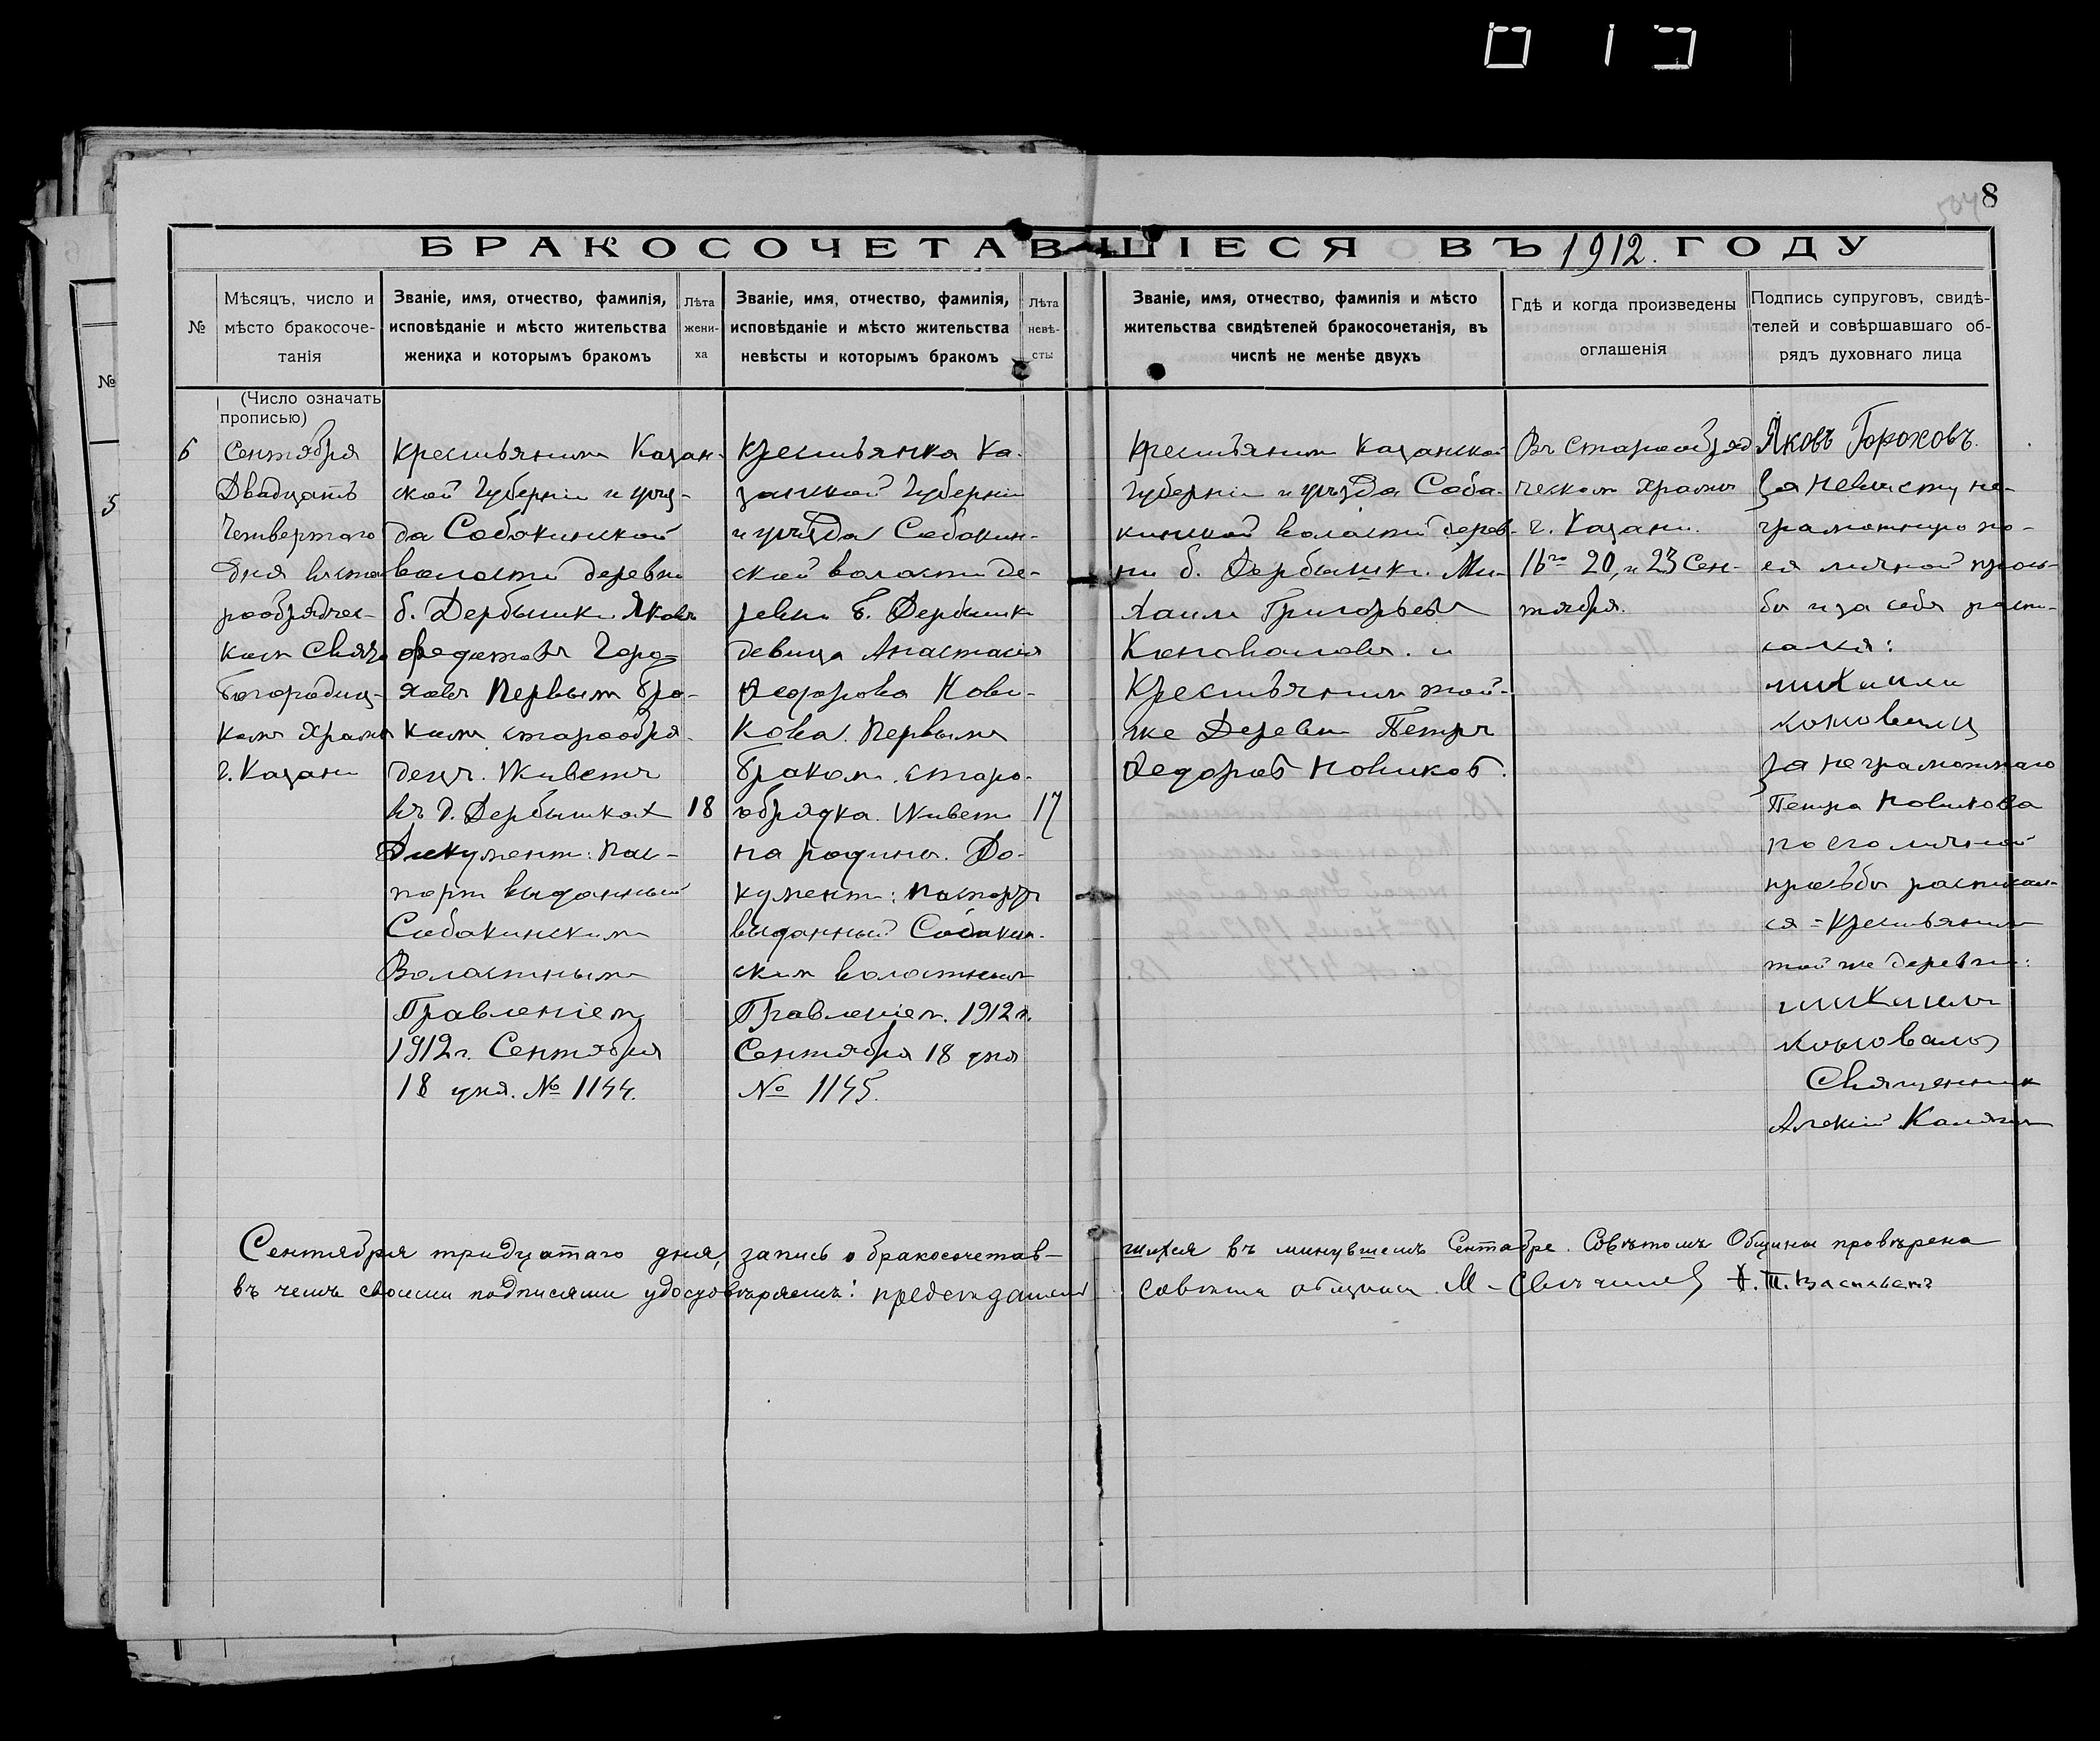 8
БРАКОСОЧЕТАВШІЕСЯ ВЪ 1912. ГОДУ
№
Мѣсяцъ, число и
мѣсто бракосоче-
танія
Званіе, имя, отчество, фамилія,
исповѣданіе и мѣсто жительства
жениха и которымъ бракомъ
Лѣта
жени-
ха
Званіе, имя, отчество, фамилія,
исповѣданіе и мѣсто жительства
невѣсты и которымъ бракомъ
Лѣта
невѣ-
сты
Званіе, имя, отчество, фамилія и мѣсто
жительства свидѣтелей бракосочетанія, въ
числѣ не менѣе двухъ
Гдѣ и когда произведены
оглашенія
Подпись супруговъ, свидѣ-
телей и совѣршавшаго об-
рядъ духовнаго лица
(Число означать
прописью)
6
Сентября
Двадцать
Четвертаго
дня въ ста
рообрядчес-
ком Свято
Богородиц-
комъ Храмѣ
г. Казани
Крестьянинъ Казан-
ской Губерніи и уѣз-
да Собакинской
волости деревни
б. Дербышки Яковъ
Федотовъ Горо-
ховъ Первым бра-
комъ старообря-
децъ. Живетъ
въ д. Дербышках
Документ: Пас-
порт выданный
Собакинскимъ
Волостнымъ
Правленіем
1912 г. Сентября
18 дня. № 1144.
18
Крестьянка Ка-
занской Губерніи
и уѣзда Собакин-
ской волости де-
ревни Б. Дербышк
девица Анастасія
Федорова Нови-
кова. Первымъ
браком. старо-
обрядка. Живет
на родинѣ. До-
кумент: Паспортъ
выданный Собакин-
ским волостным
Правленіем. 1912 г.
Сентября 18 дня
№ 1145.
17
Крестьянин Казанской
Губерніи и уѣзда Соба-
кинской волости дерев-
ни б. Дербышки. Ми-
хаилъ Григорьевъ
Коноваловъ. и
Крестьянин той-
же Деревни Петръ
Федоров Новиков.
Въ старообряд
ческом храмѣ
г. Казани.
16го 20, и 23 Сен-
тября.
Яковъ Гороховъ.
За невѣсту не-
грамотную по-
ея личной прозь-
бѣ и за себя распи-
сался:
михаилъ
коновалов
За неграмотнаго
Петра Новикова
по его личной
просьбѣ расписал-
ся = Крестьянин
той же деревни:
михаилъ
коновалов
Священник
Алексій Калягин
Сентября тридцатаго дня, запись о бракосочетав-
шихся въ минувшемъ Сентябре. Совѣтомъ Общины провѣрена
въ чемъ своими подписями удостовѣряемъ: председатель
совѣта общины М-
5
№